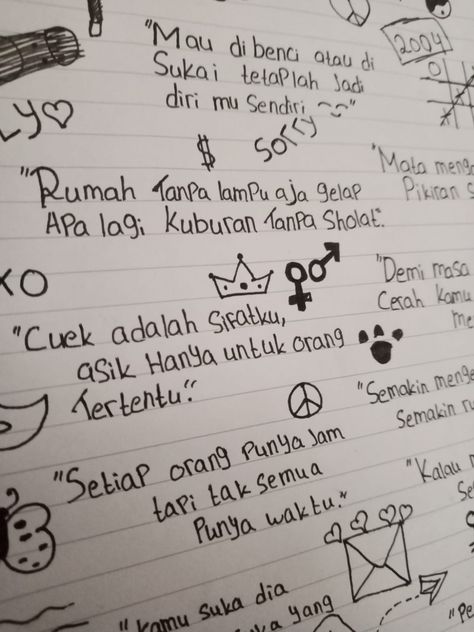 "Mau di benci atau di
Sukai tetaplah Jadi
diri mu Sendiri
2004
O
Ly
$
Sorry
"Rumah Tanpa lampu aja gelap
APa lagi Kuburan Tanpa Sholat."
"Mata
Pikiran
XO
"Demi masa
Cerah Kamu
"Cuek adalah Sifatku,
asik Hanya untuk orang
Tertentu."
"Semakin
Semakin
"Setiap orang Punya Jam
tapi tak semua
Punya waktu."
"Kalau
"Kamu suka dia
yang